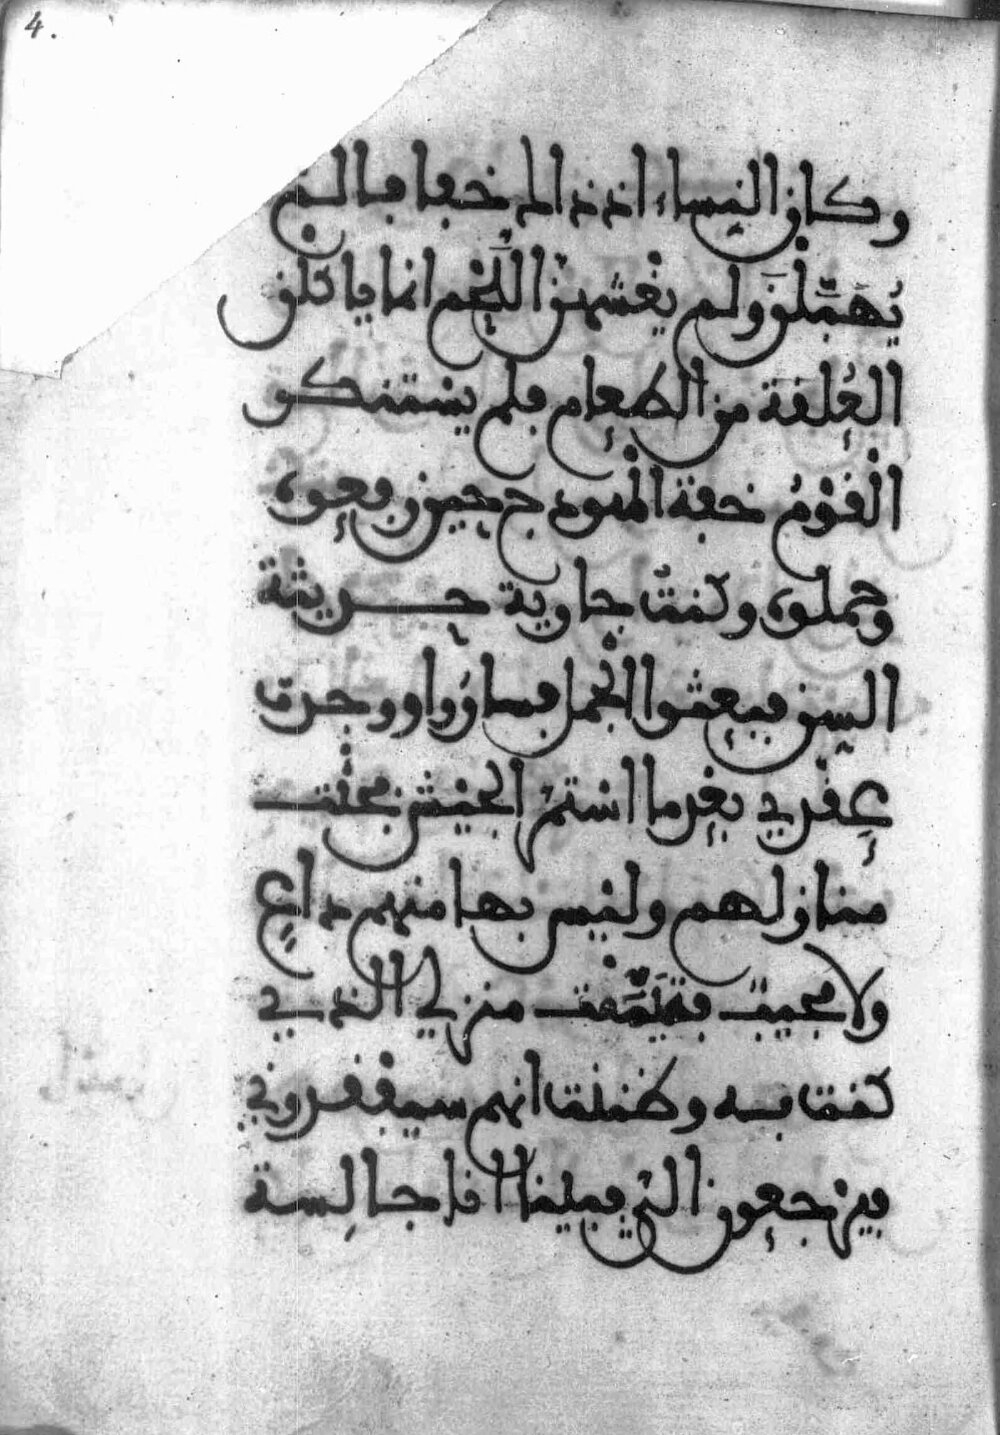 4.
وكان النساء اذ ذاك خفافا لم
يُهَبَّلْنَ ولم يغْشهنْ اللَّحْم انما ياكلن
العُلقة من الطعام فلم يستنكر
الْقوْمُ خفة الهودج حين رفعوه
وحملوه وكنت جارية حديثة
السن فبعثوا الجْمل فساروا ووجدت
عِقْدي بعْدما استمرْ الجيْش فجئْت
منازلهم وليْس بها منهم داعٍ
ولا مجيبٌ فتيَمَّمْت منزلي الذي
كنت به وظننْت انهم سيفْقدوني
فيرْجعون اليَّ فبينا انا جالِسة